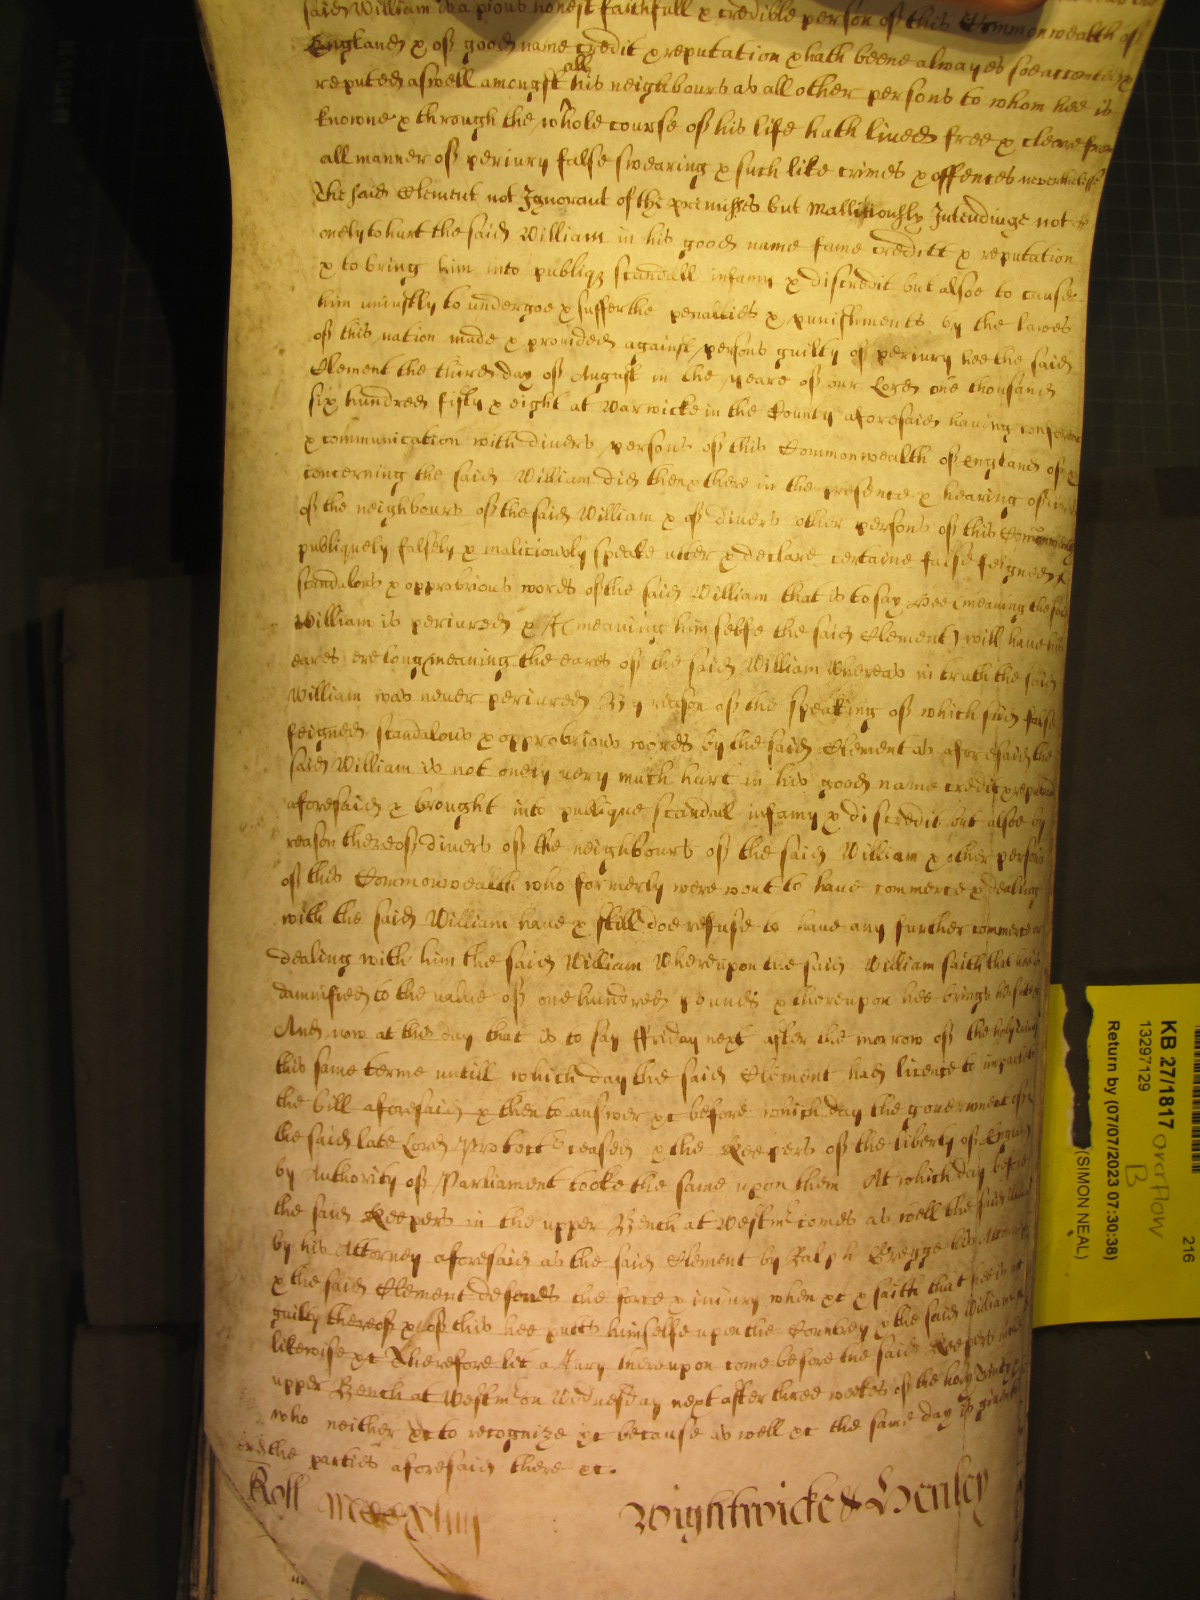 said William is a pious honest faithfull & credible person of this Commonwealth of
England & of good name credit & reputation & hath beene alwayes soe accompted &
reputed aswell amongst all his neighbours as all other persons to whom hee is
knowne & through the whole course of his life hath lived free & cleare from
all manner of periury false swearing & such like crimes & offences neverthelesse
The said Clement not Ignorant of the premisses but Mallitiously Intendinge not
onely to hurt the said William in his good name fame creditt & reputation
& to bring him into publiq scandall infamy & discredit but alsoe to cause
him uniustly to undergoe & suffer the penalties & punishments by the lawes
of this nation made & provided against persons guilty of periury hee the said
Clement the third day of August in the yeare of our Lord one thousand
six hundred fifty & eight at Warwicke in the County aforesaid having conference
& communication with divers persons of this Commonwealth of England of &
concerning the said William did then & there in the presence & hearing of divers
of the neighbours of the said William & of divers other persons of this Comonwealth
publiquely falsely & maliciously speake utter & declare certaine false feigned &
scandalous & opprobrious words of the said William that is to say Hee (meaning the said
William is periured & I (meaning himselfe the said Clement) will have his
eares ere long meaning the eares of the said William Whereas in truth the said
William was never periured By reason of the speaking of which said false
feigned scandalous & opprobrious words by the said Clement as aforesaid the
said William is not onely very much hurt in his good name credit & reputation
aforesaid & brought into publique scandall infamy & discredit but alsoe by
reason thereof divers of the neighbours of the said William & other persons
of this Commonwealth who formerly were wont to have commerce & dealing
with the said William have & still doe refuse to have any further commerce or
dealing with him the said William Whereupon the said William saith that hee is
damnified to the value of one hundred pounds & thereupon hee brings his suite &c
And now at this day that is to say ffriday next after the morrow of the holy Trinity
this same terme untill which day the said Clement had licence to imparle to
the bill aforesaid & then to answer &c before which day the government of
the said late Lord Protector ceased & the Keepers of the liberty of England
by Authority of Parliament tooke the same upon them At which day before
the said Keepers in the upper Bench at Westmr comes as well the said William
by his Attorney aforesaid as the said Clement by Ralph Gregge his Attorney
& the said Clement defends the force & iniury when &c & saith that hee is not
guilty thereof & of this hee putts himselfe upon the Countrey & the said William
likewise &c Therefore let a Jury thereupon come before the said Keepers in the
upper Bench at Westmr on Wednesday next after three weekes of the holy Trinity
who neither &c to recognize &c because as well &c the same day is given
to the parties aforesaid there &c.
Roll
Wightwicke & Henley
216
KB 27/1817 overflow
B
13297129
Return by (07/07/2023 07:30:38)
(SIMON NEAL)